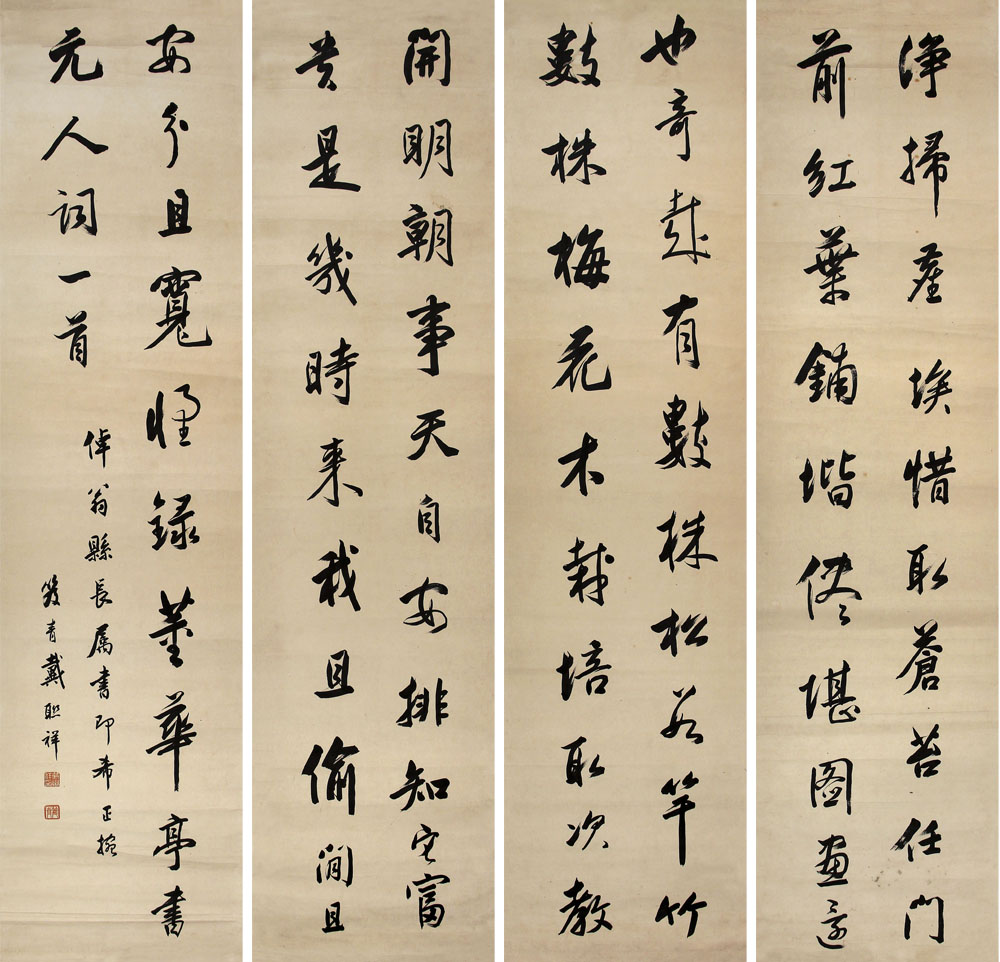 淨掃塵埃惜取蒼苔任門
前紅葉鋪堦儘堪圖畫還
也奇哉有數株松数竿竹
數株梅花木栽培取次教
開明朝事天自安排知它富
貴是幾時來我且偷閒且
安分且寬懷録董華亭書
元人詞一首
倬翁縣長属書即希正捥
青戴祥